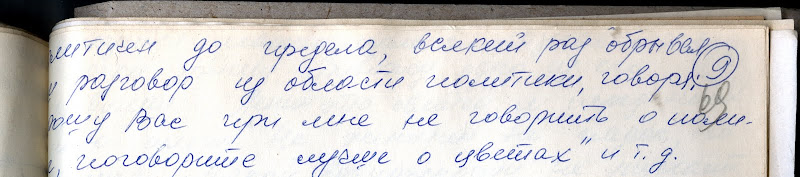 литичен до предела, всякий раз обрывал 9
разговор из области политики, говоря:
рошу Вас при мне не говорить о поли-
и, поговорите лучше о цветах" и т.д.